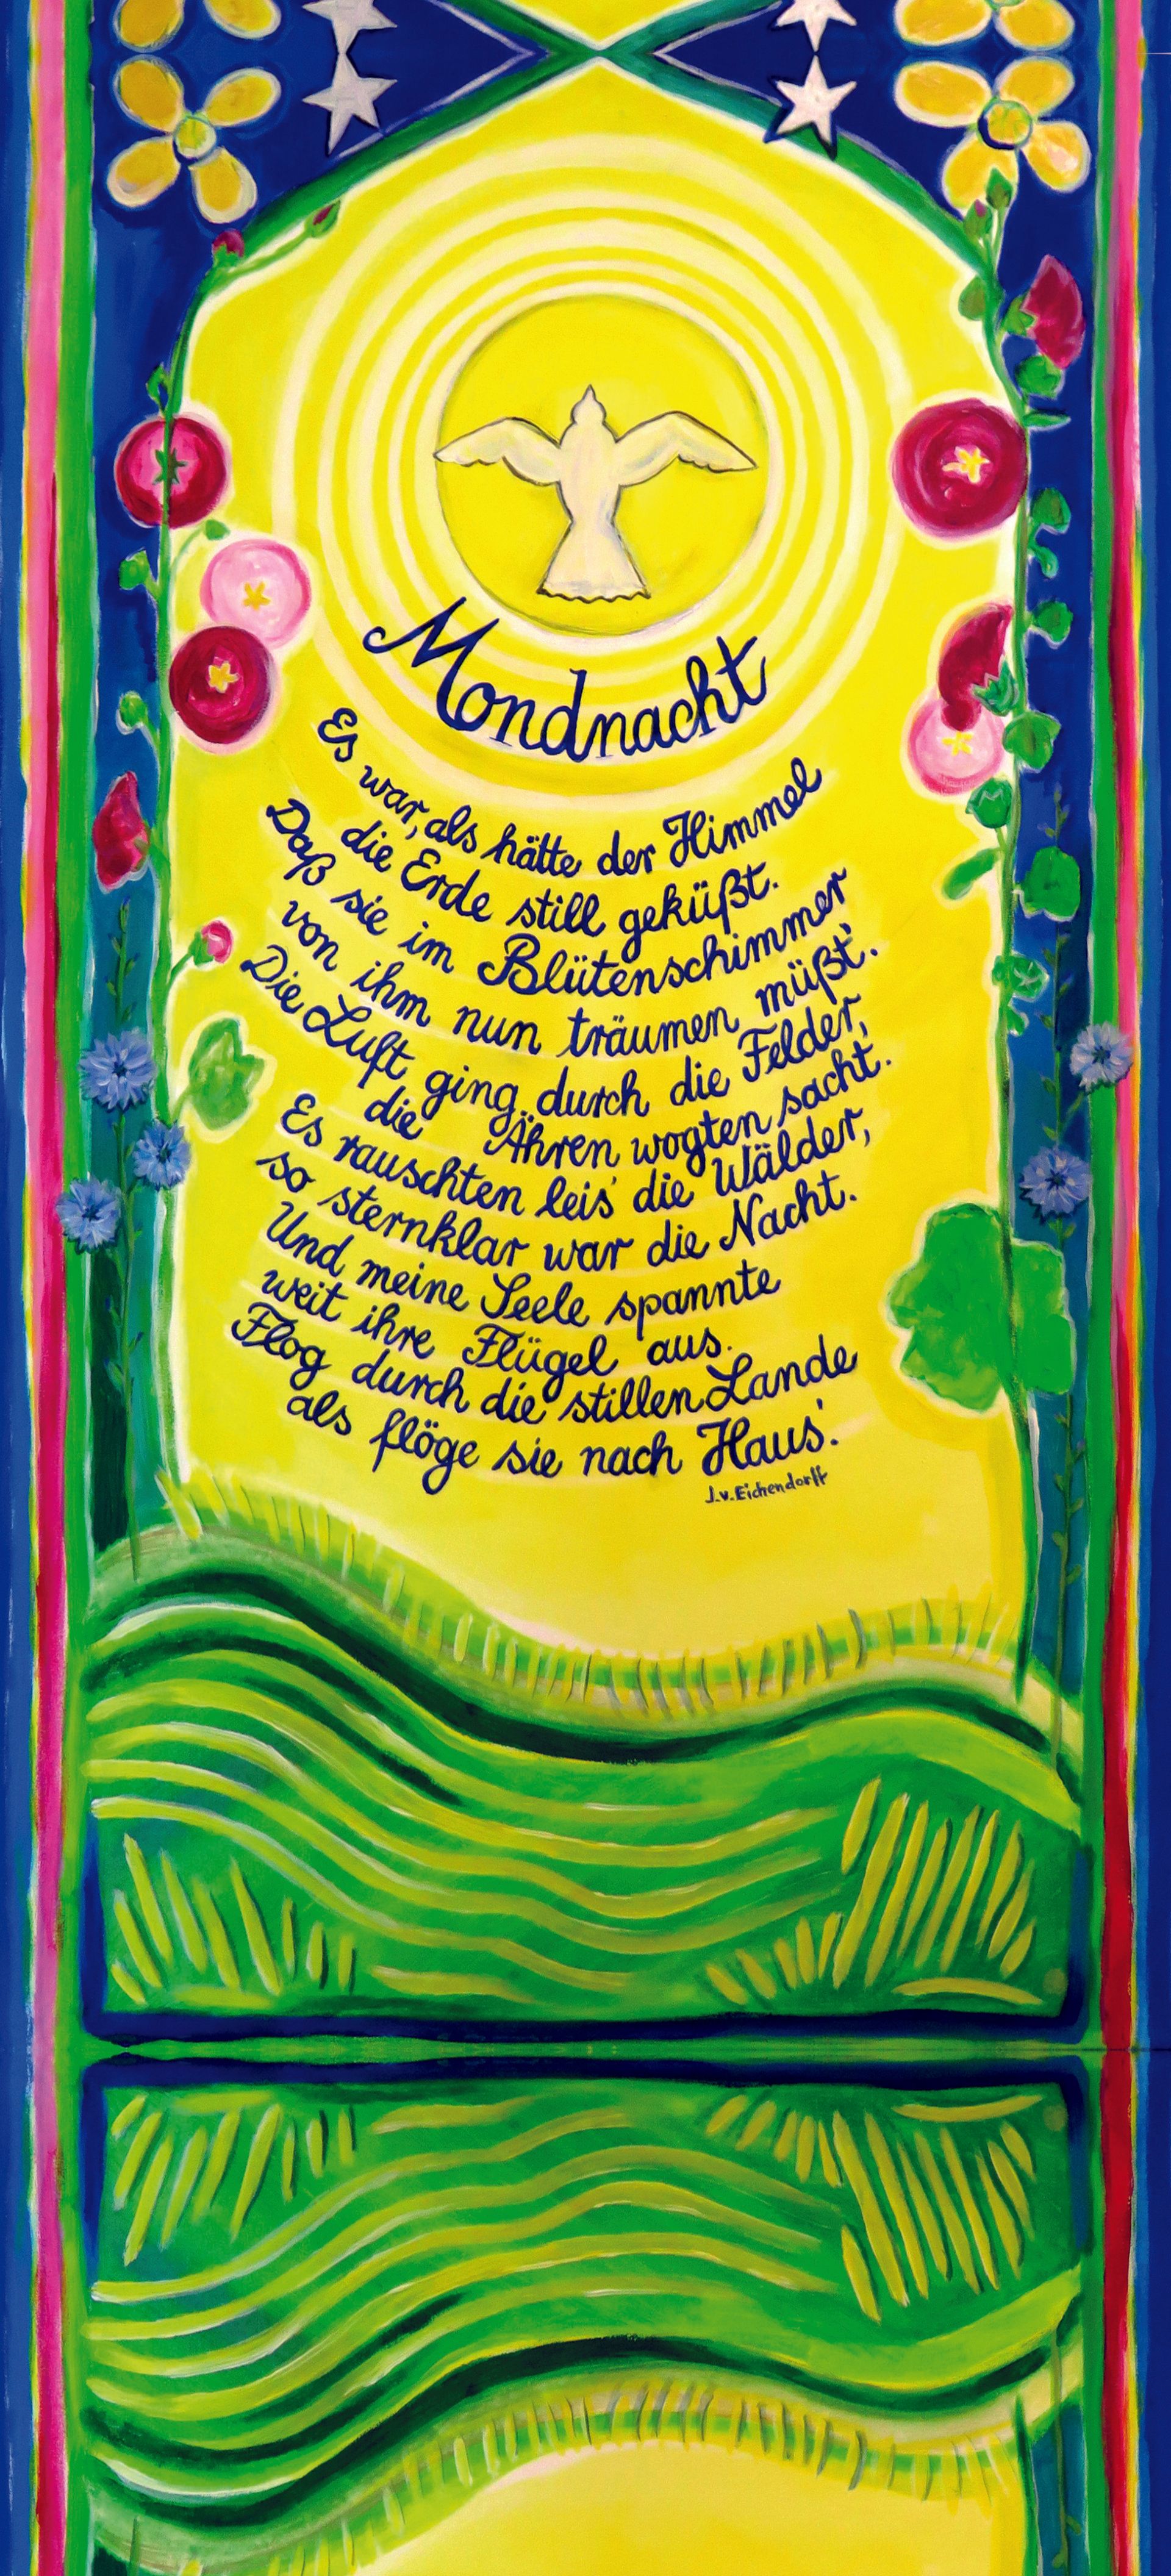 Mondnacht
Es war, als hätte der Himmel
die Erde still geküßt.
Daß sie im Blütenschimmer
von ihm nun träumen müßt'.
Die Luft ging durch die Felder,
die Ähren wogten sacht.
Es rauschten leis' die Wälder,
so sternklar war die Nacht.
Und meine Seele spannte
weit ihre Flügel aus.
Flog durch die stillen Lande
als flöge sie nach Haus'.
J.v.Eichendorff